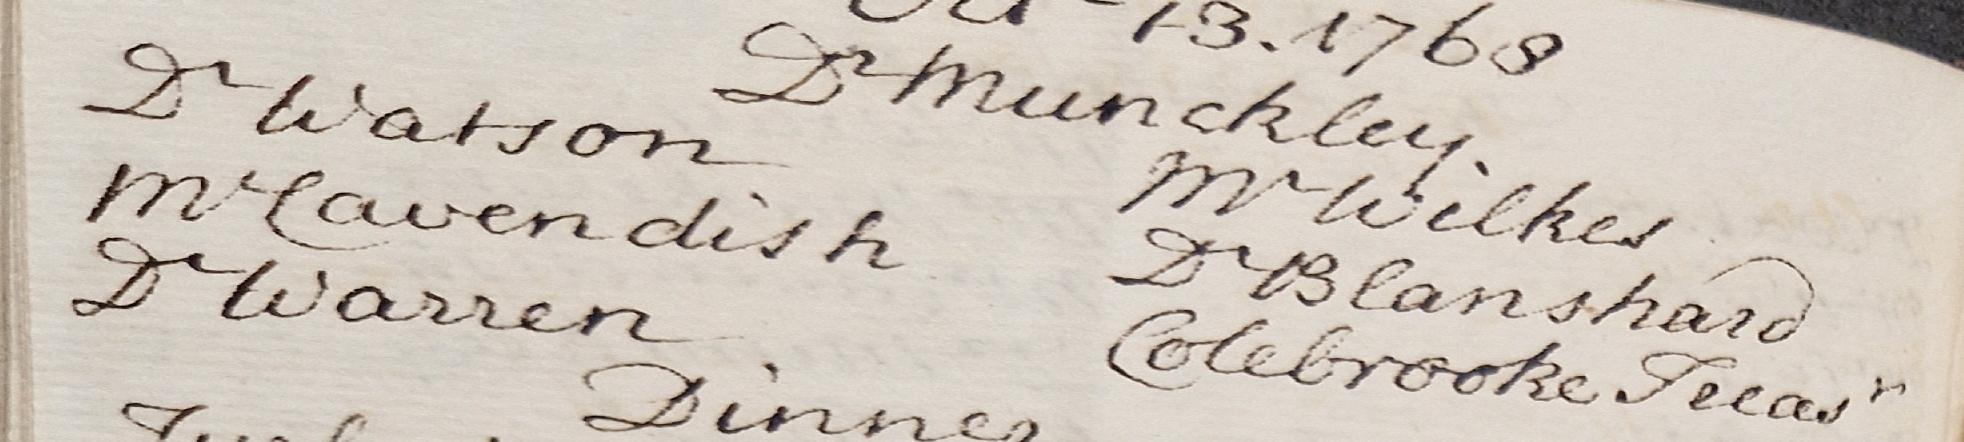 Oct 13. 1768
Dr Munckley.
Dr Watson
Mr Wilkes
Mr Cavendish
Dr Blanshard
Dr Warren
Colebrooke Treasr
Dinner